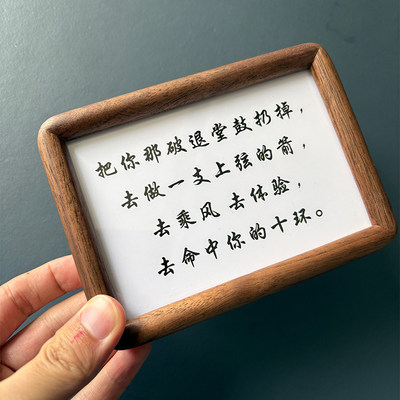 把你那破退堂鼓扔掉，
去做一支上弦的箭，
去乘风 去体验，
去命中你的十环。